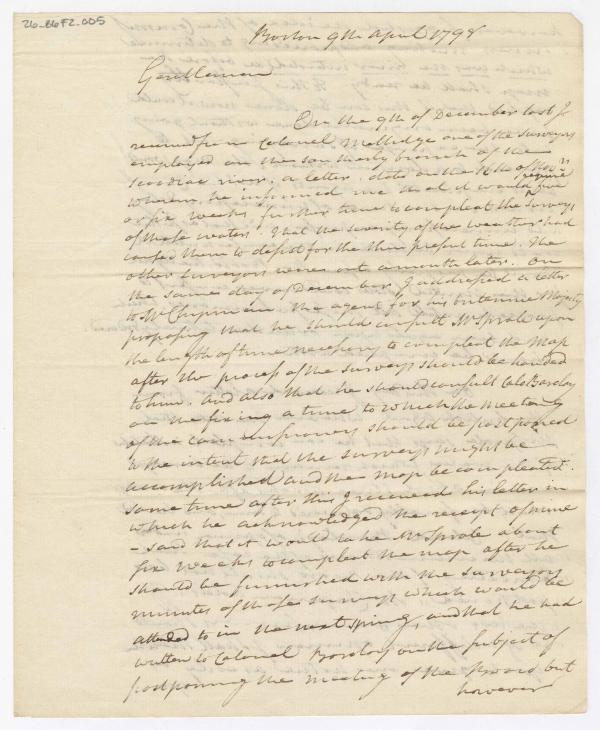 26-66F2.005
Boston 9th April 1798
Gentlemen
On the 9th of December last I
received from Colonel Mellidge one of the surveyors
employed on the southerly branch of the
Scoodiac river, a letter, dated on the
wherein he informed me that it would require five
or six weeks further time to compleat the Surveys
of those waters. That the severity of the weather had
caused them to desist for the then present time. The
other surveyors were out a month later. On
the same day of December I addressed a letter
to Mr Chipman the agent for his britannic Majesty
proposing that he should consult Mr Sprole upon
the length of time necessary to compleat the Map
after the process of the surveys should be handed
to him. And also that he should consult Colo Barclay
on the fixing a time to which the Meeting
of the commissioners should be postponed
to the intent that the surveys might be
accomplished and the map be compleated.
some time after this I received his letter in
which he acknowledged the receipt of mine
- said that it would take Mr Sprole about
six weeks to compleat the map after he
should be furnished with the surveyors
minutes of those surveys which would be
attended to in the next spring, and that he had
written to Colonel Barclay on the subject of
postponing the meeting of the Board but
however